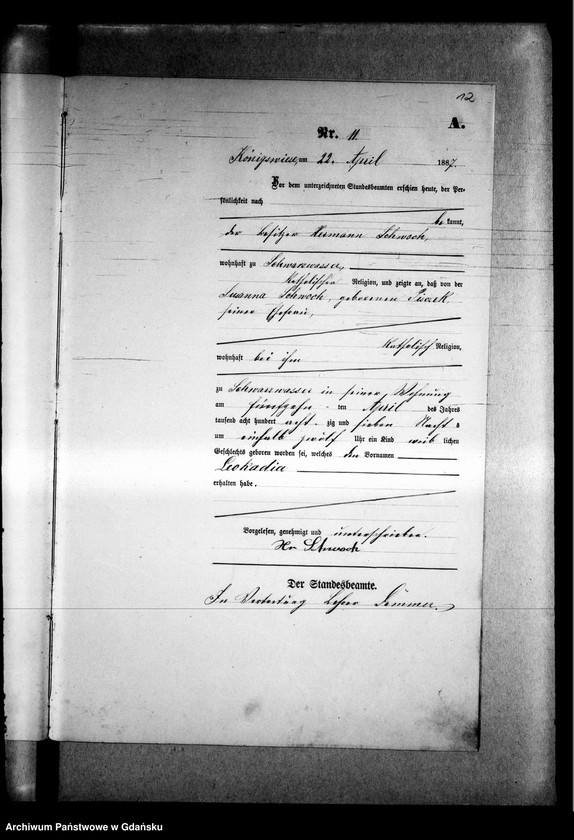 12
A.
Nr. 11
Königswiese, am 22. April 1887.
Vor dem unterzeichneten Standesbeamten erschien heute, der Per-
sönlichkeit nach
be kannt,
der Besitzer Hermann Schwoch,
wohnhaft zu Schwarzwasser,
katholischer Religion, und zeigte an, daß von der
Susanna Schwoch, geborenen
seiner Ehefrau,
katholisch Religion,
wohnhaft bei ihm
zu Schwarzwasser in seiner Wohnung
am fünfzehn. den April des Jahres
tausend acht hundert acht. zig und sieben Nachts
um einhalb zwölf Uhr ein Kind weib lichen
Geschlechts geboren worden sei, welches den Vornamen
Leokadia
erhalten habe.
Vorgelesen, genehmigt und unterschrieben.
Schwoch
Der Standesbeamte.
In Vertretung Lehrer
Archiwum Państwowe w Gdańsku